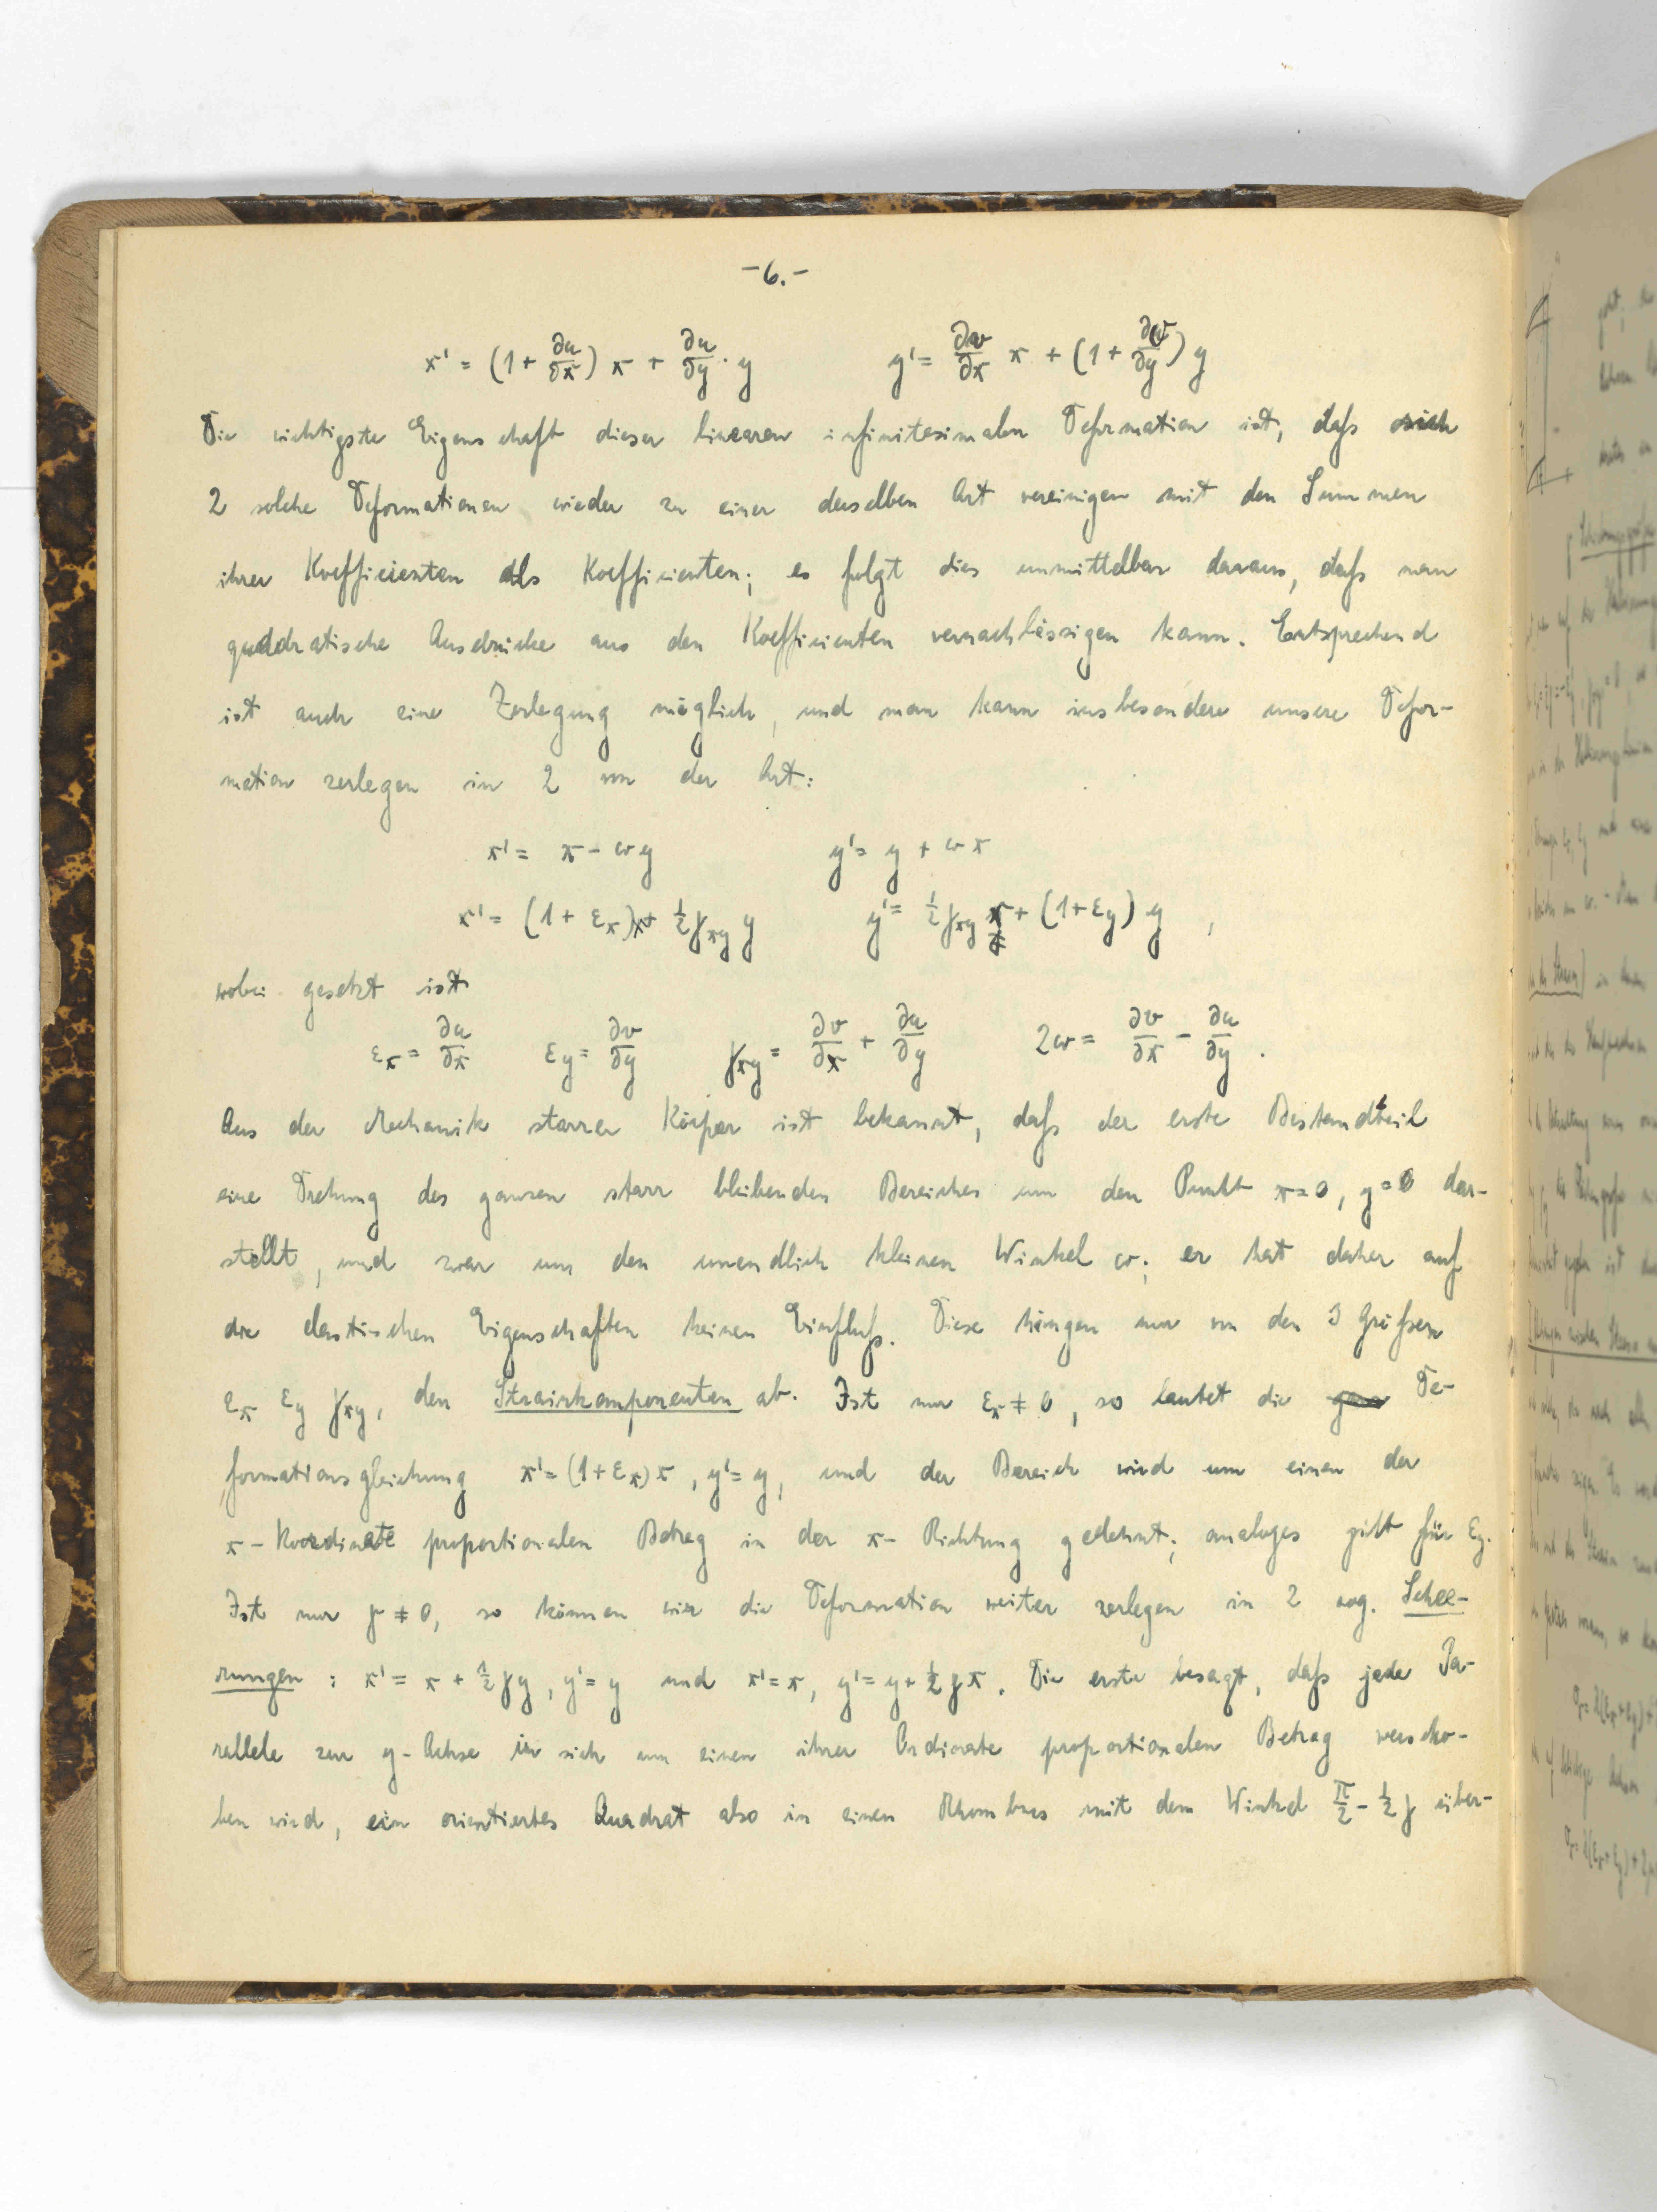 -6.-
x' = (1 + ∂u/∂x) x + ∂u/∂y · y    y' = ∂v/∂x x + (1 + ∂v/∂y) y
Die wichtigste Eigenschaft dieser linearen infinitesimalen Deformation ist, daß sich
2 solche Deformationen wieder zu einer derselben Art vereinigen mit den Summen
ihrer Koefficienten als Koefficienten; es folgt dies unmittelbar daraus, daß man
quadratische Ausdrücke aus den Koefficienten vernachlässigen kann. Entsprechend
ist auch eine Zerlegung möglich, und man kann insbesondere unsere Defor-
mation zerlegen in 2 von der Art:
x' = x - ωy    y' = y + ωx
x' = (1 + εx)x + 1/2 γxy y    y' = 1/2 γxy x + (1 + εy) y ,
wobei gesetzt ist
εx = ∂u/∂x    εy = ∂v/∂y    γxy = ∂v/∂x + ∂u/∂y    2ω = ∂v/∂x - ∂u/∂y .
Aus der Mechanik starrer Körper ist bekannt, daß der erste Bestandteil
eine Drehung des ganzen starr bleibenden Bereiches um den Punkt x=0, y=0 dar-
stellt, und zwar um den unendlich kleinen Winkel ω; er hat daher auf
die elastischen Eigenschaften keinen Einfluß. Diese hängen nur von den 3 Größen
εx εy γxy, den Strainkomponenten ab. Ist nur εx ≠ 0, so lautet die De-
formationsgleichung x' = (1+εx)x, y' = y, und der Bereich wird um einen der
x-Koordinate proportionalen Betrag in der x-Richtung gedehnt; analoges gilt für εy.
Ist nur γ ≠ 0, so können wir die Deformation weiter zerlegen in 2 sog. Schee-
rungen : x' = x + 1/2 γy, y' = y und x' = x, y' = y + 1/2 γx. Die erste besagt, daß jede Pa-
rallele zur y-Achse in sich um einen ihrer Ordinate proportionalen Betrag verscho-
ben wird, ein orientiertes Quadrat also in einen Rhombus mit dem Winkel π/2 - 1/2 γ über-